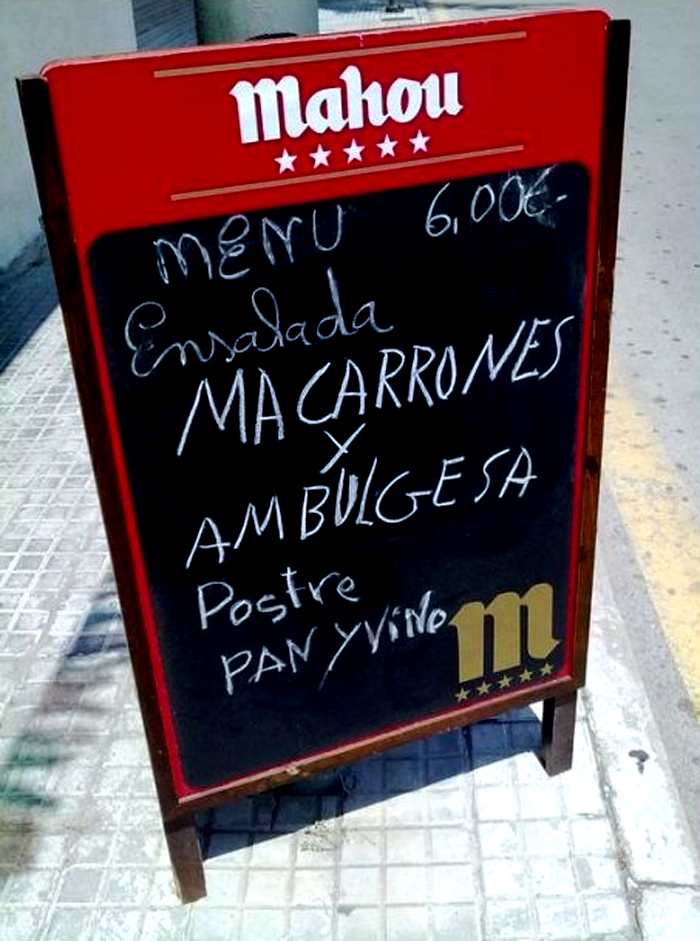 Mahou
MENU 6,00€-
Ensalada
MACARRONES
Y
AMBULGESA
Postre
PAN Y ViNo
m